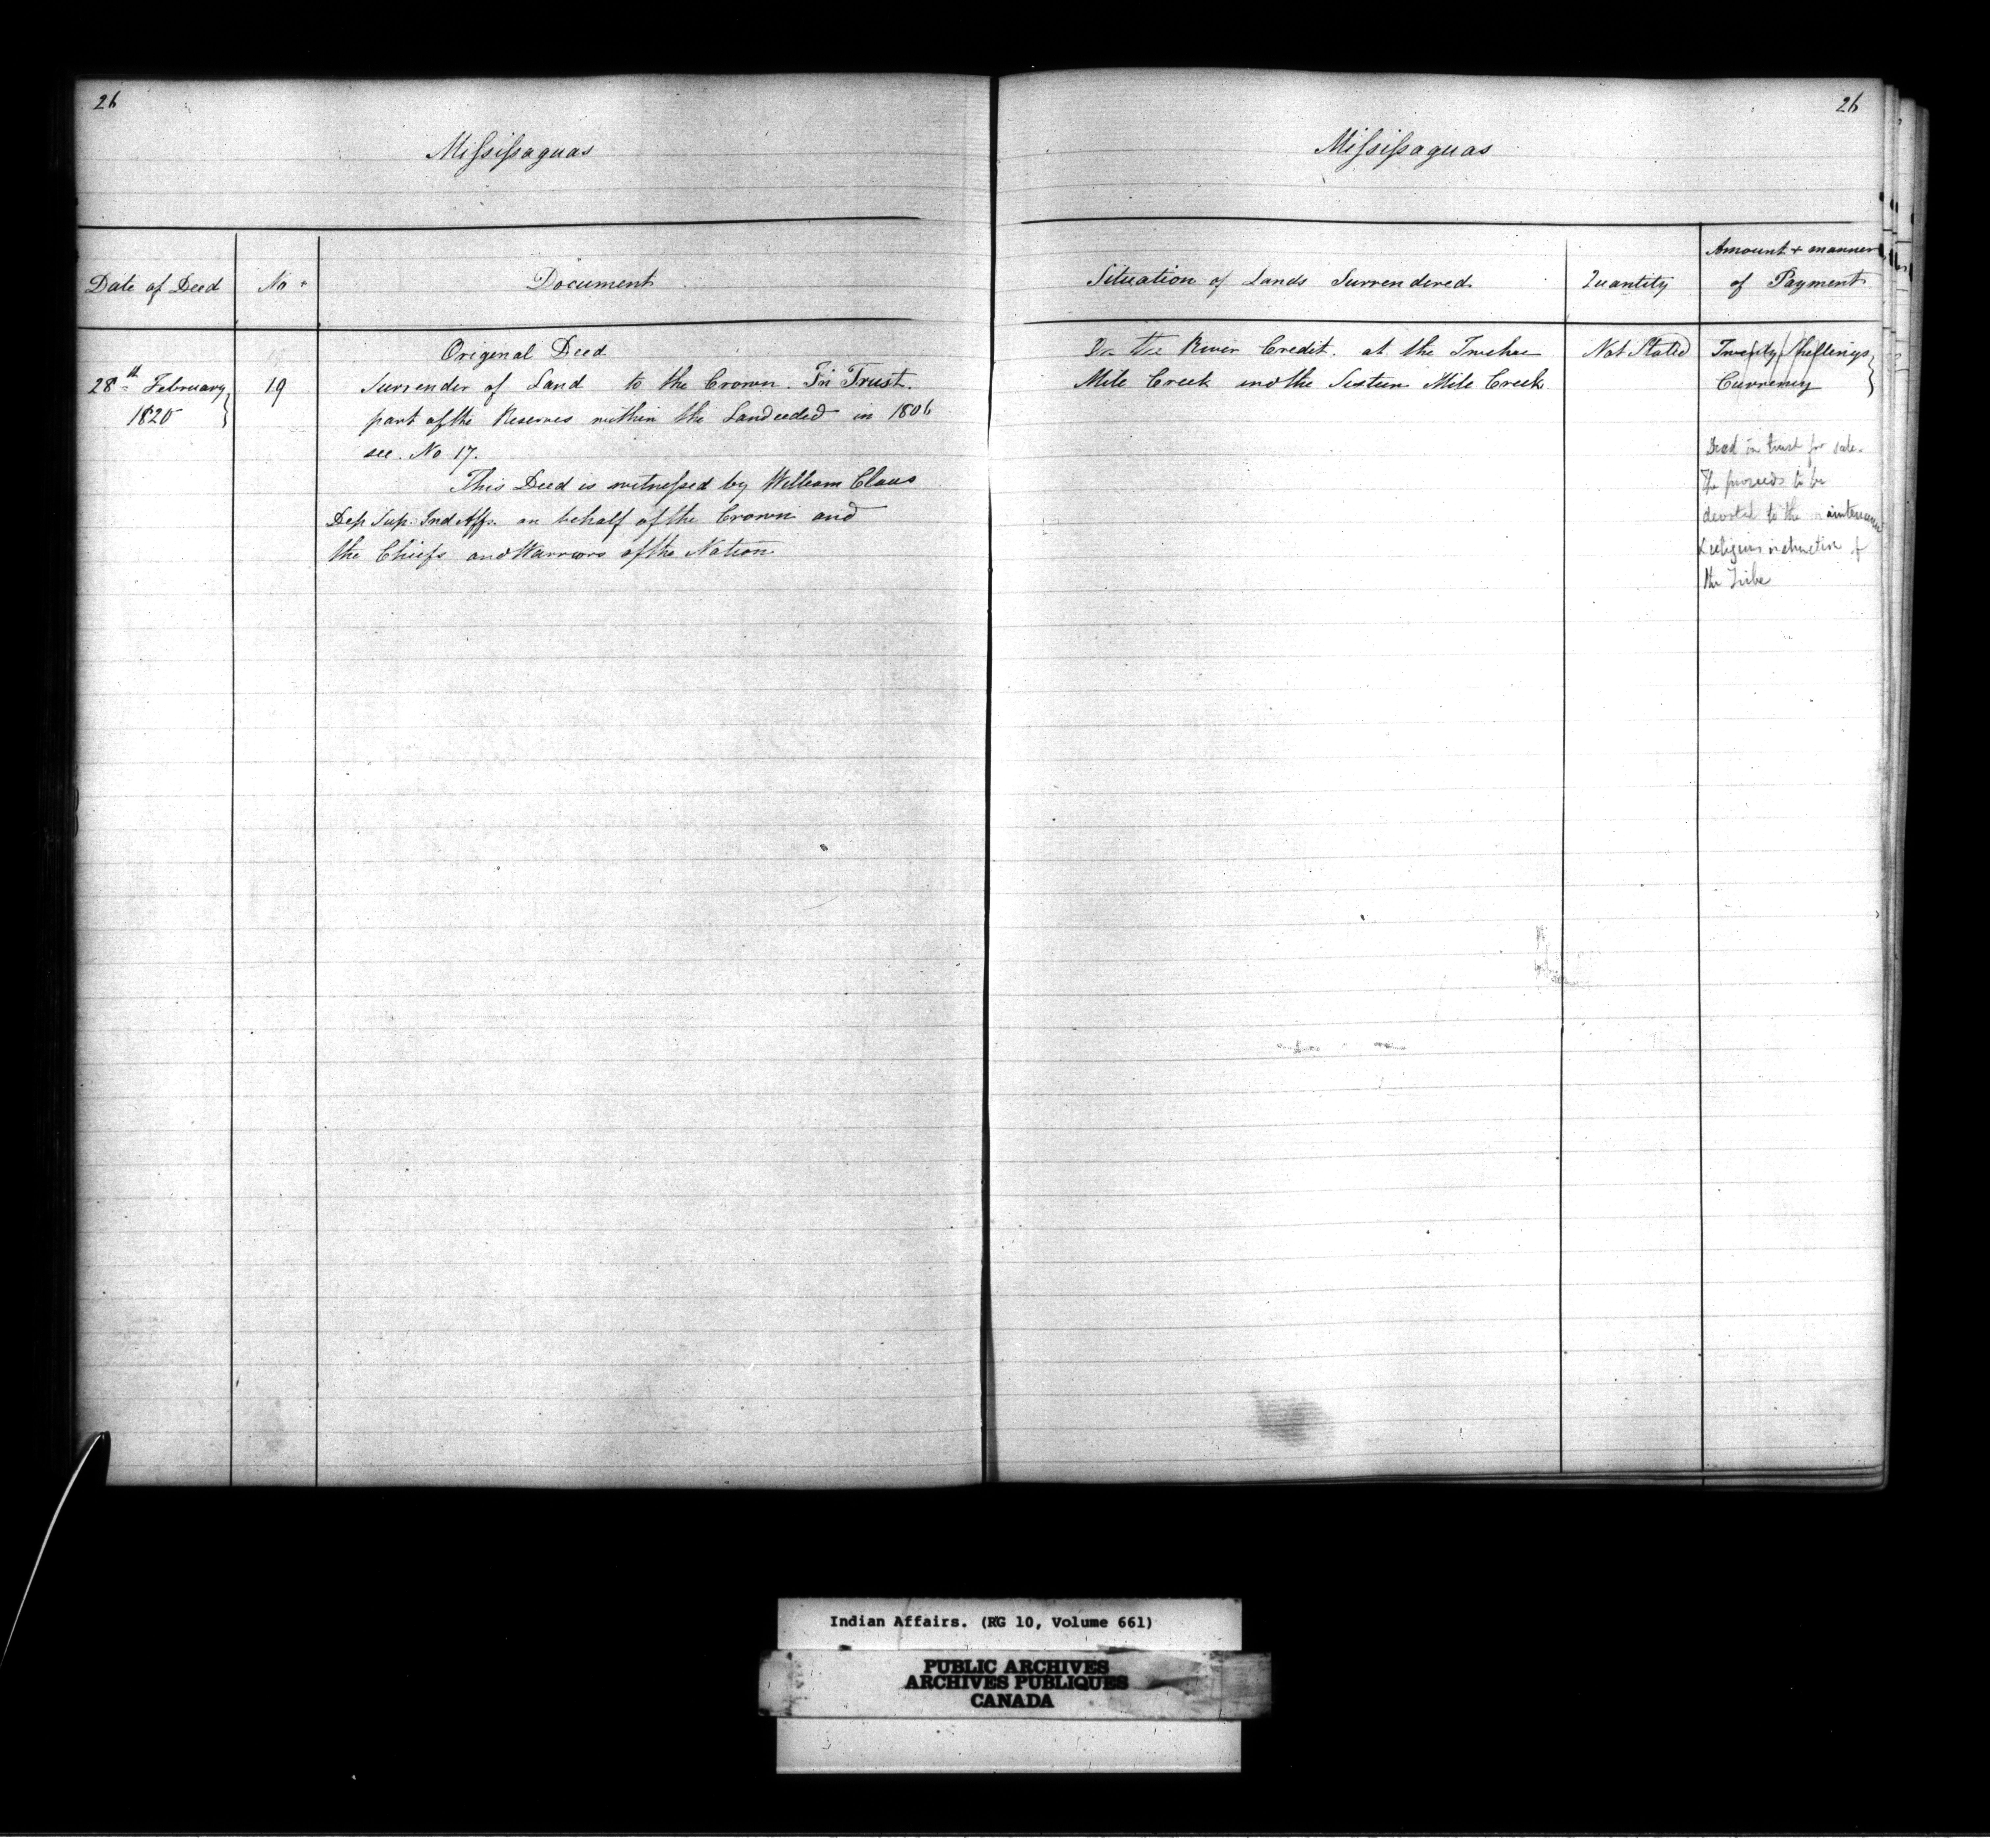 26
Mississaguas
Date of Deed
No.
Document
Original Deed
28th February
1820
19
Surrender of Land to the Crown. In Trust.
part of the Reserves within the Land ceded in 1806
see. No 17.
This Deed is witnessed by William Claus
Dep Sup. Ind Affs. on behalf of the Crown and
the Chiefs and Warriors of the Nation
26
Mississaguas
Situation of Lands Surrendered
Quantity
Amount & manner
of Payment
On the River Credit. at the Twelve
Mile Creek and the Sixteen Mile Creek
Not Stated
Twenty Shillings
Currency
Deed in trust for sale.
The proceeds to be
devoted to the maintenance
& religious instruction of
the Tribe
Indian Affairs. (RG 10, Volume 661)
PUBLIC ARCHIVES
ARCHIVES PUBLIQUES
CANADA